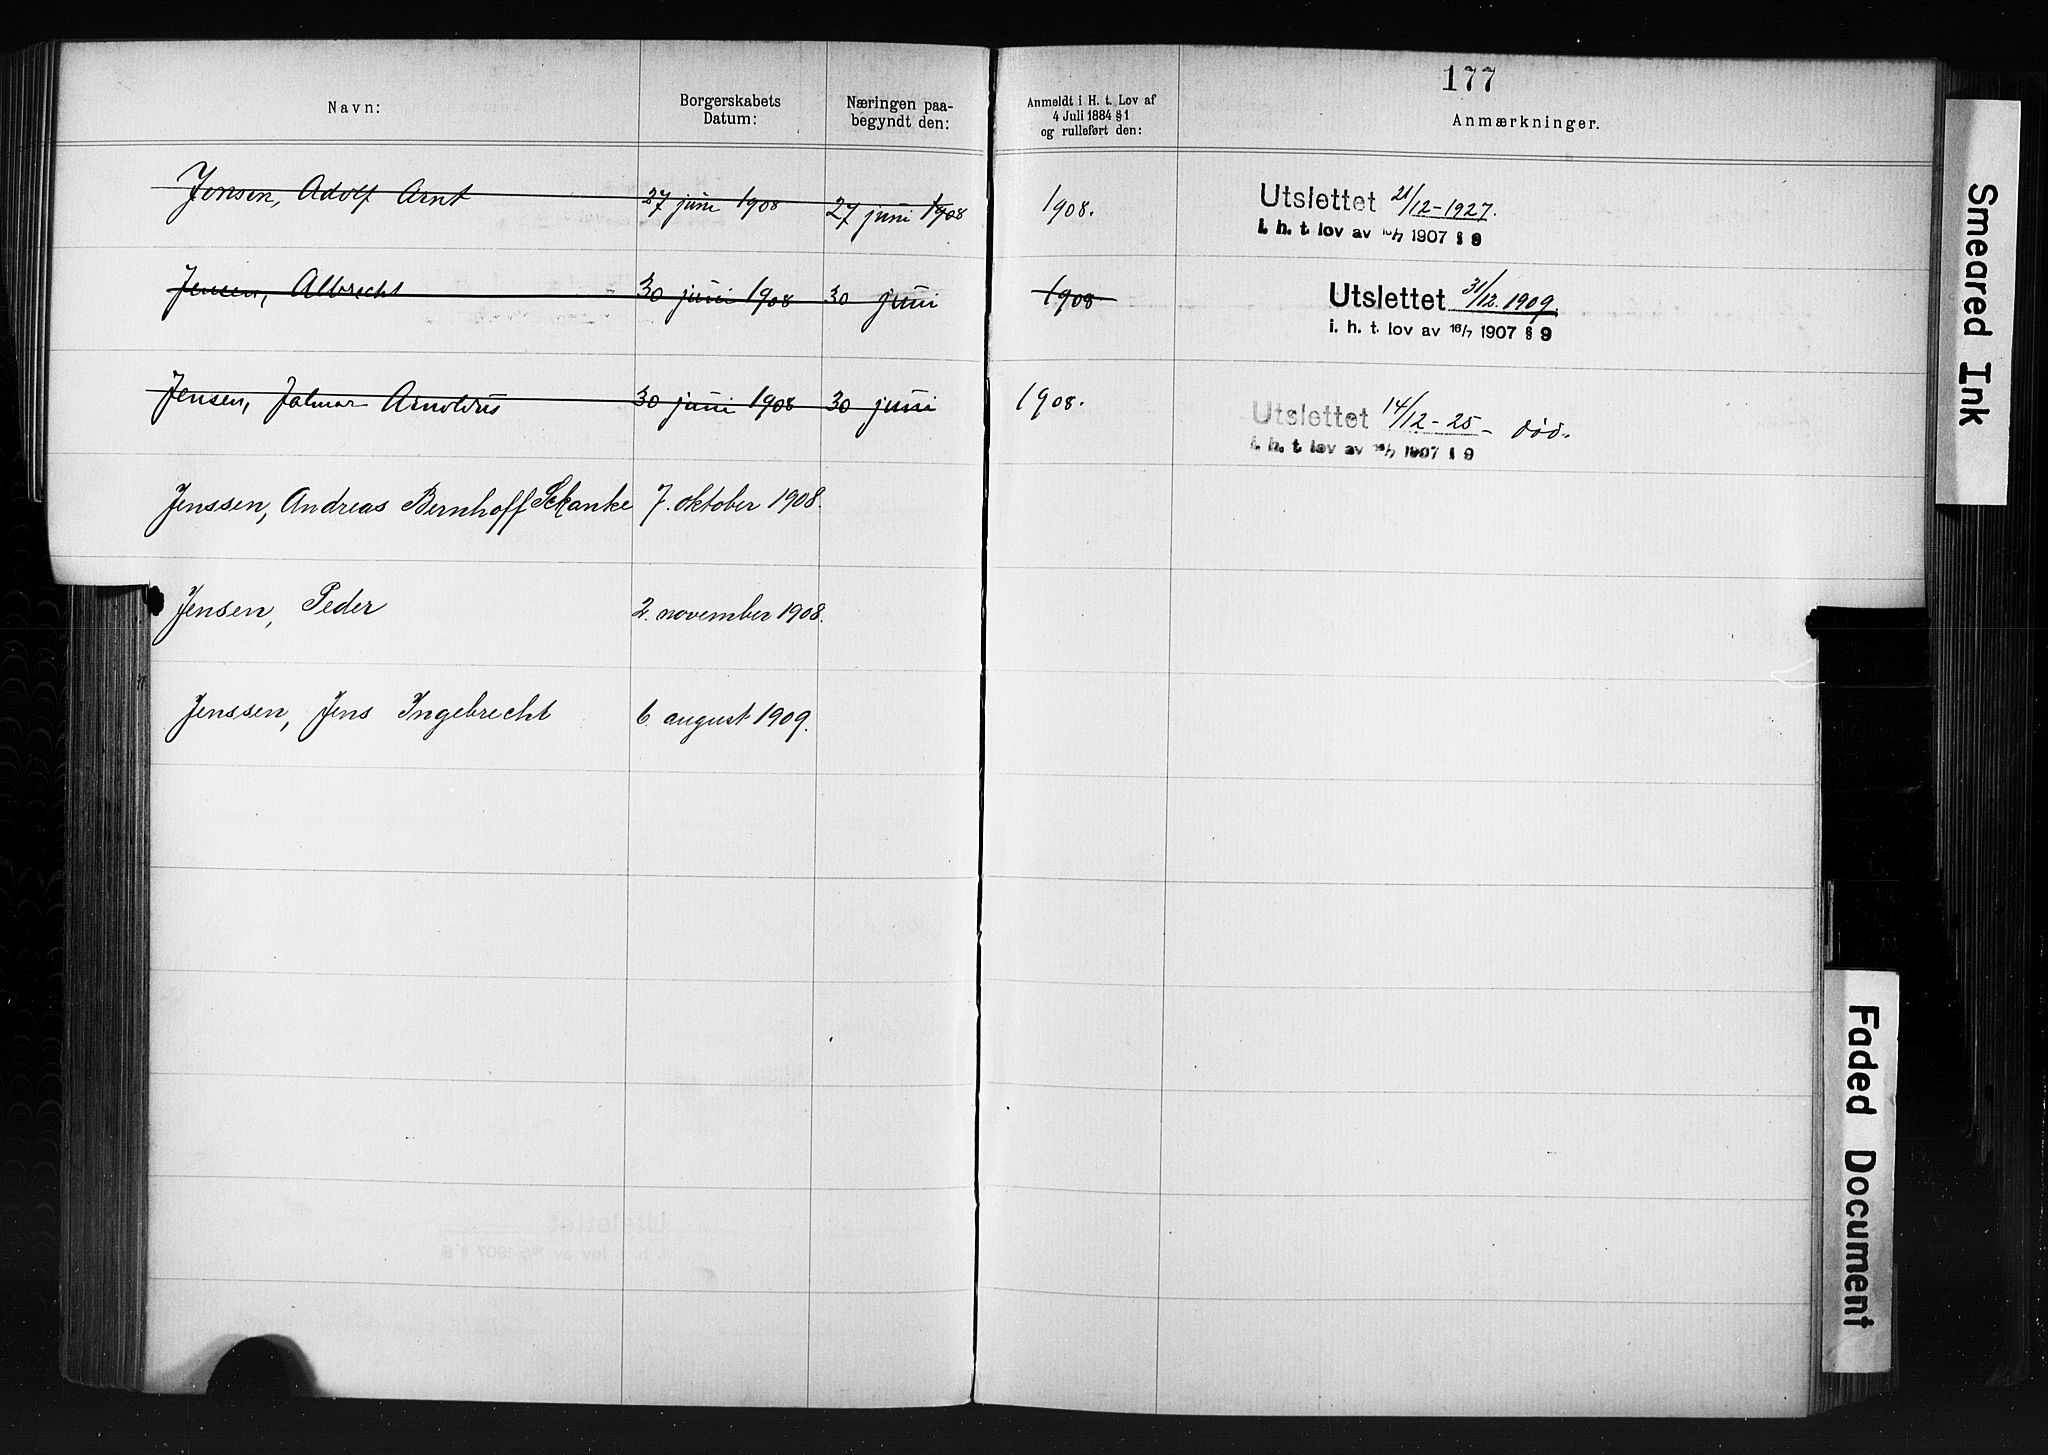 177
Navn:
Borgerskabets
Datum:
Næringen paa-
begyndt den:
Anmeldt i H. t. Lov af
4 Juli 1884 § 1
og rulleført den:
Anmærkninger.
Jensen, Adolf Arnt 27 juni 1908 27 juni 1908 1908. Utslettet 21/12-1927.
i. h. t. lov av 16/7 1907 § 9
Jensen, Albrecht 30 juni 1908 30 juni 1908 Utslettet 31/12.1909.
i. h. t. lov av 16/7 1907 § 9
Jensen, Jalmar Arnoldus 30 juni 1908 30 juni 1908. Utslettet 14/12-25- död.
i. h. t. lov av 16/7 1907 § 9
Jenssen, Andreas Bernhoff Schanke 7. oktober 1908.
Jensen, Peder 2. november 1908.
Jenssen, Jens Ingebrecht 6. august 1909.
Smeared Ink
Faded Document